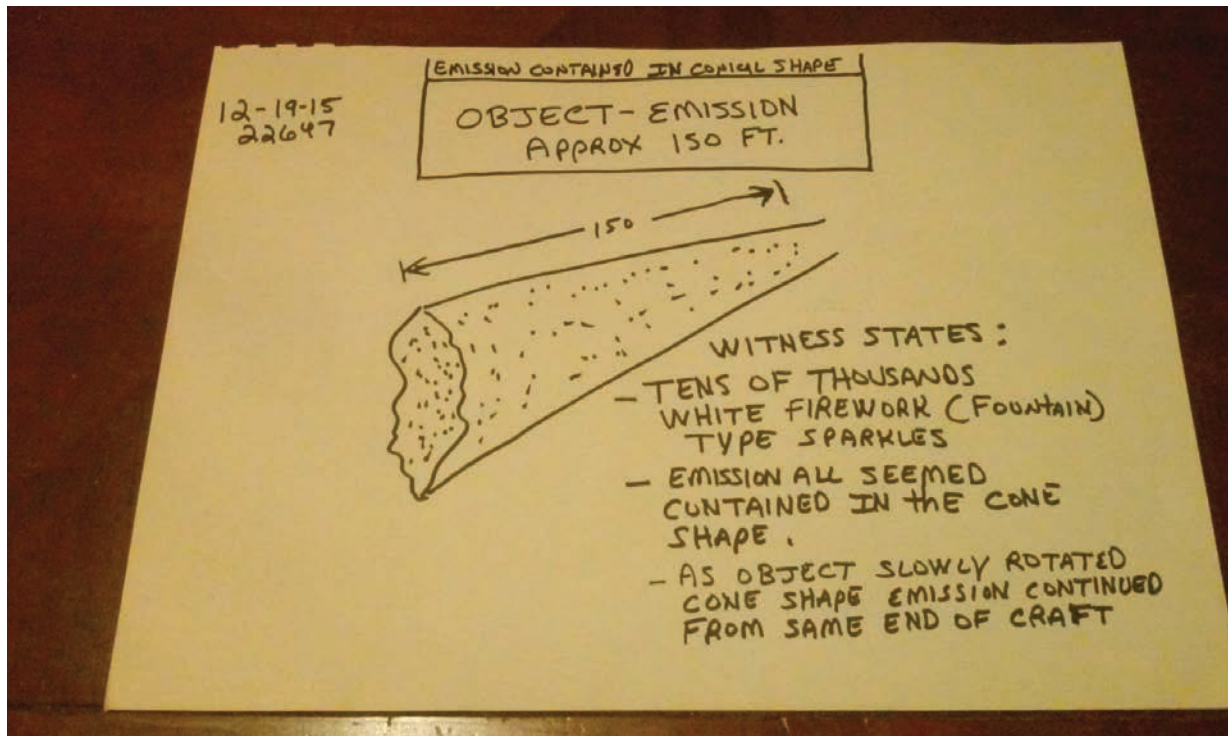 12-19-15
22647
EMISSION CONTAINED IN CONICAL SHAPE
OBJECT-EMISSION
APPROX 150 FT.
150
WITNESS STATES:
- TENS OF THOUSANDS
WHITE FIREWORK (FOUNTAIN)
TYPE SPARKLES
- EMISSION ALL SEEMED
CUNTAINED IN thE CONE
SHAPE.
- AS OBJECT SLOWLY ROTATED
CONE SHAPE EMISSION CONTINUED
FROM SAME END OF CRAFT